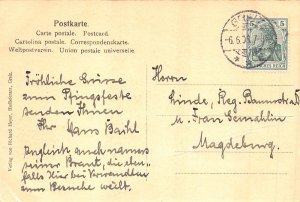 Postkarte.
Carte postale. Postcard.
Cartolina postale. Correspondenzkarte.
Weltpostverein. Union postale universelle.
5
Fröhliche Grüsse
zum Pfingstfeste
senden Ihnen
Ihr Hans Baihl
Zugleich auch namens
seiner Braut, die eben-
falls hier bei Verwandten
zum Besuche weilt.
Herrn
Linde, Reg.
u. Frau Gemahlin
Magdeburg
Verlag von Richard